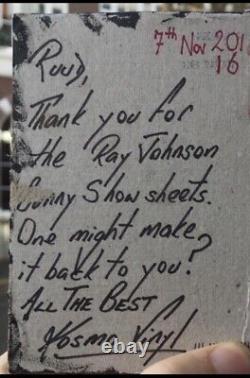 7th Nov 2016
Ruud,
Thank you for
the Ray Johnson
Bunny Show sheets.
One might make
it back to you?
ALL THE BEST
Kosmo Vinyl